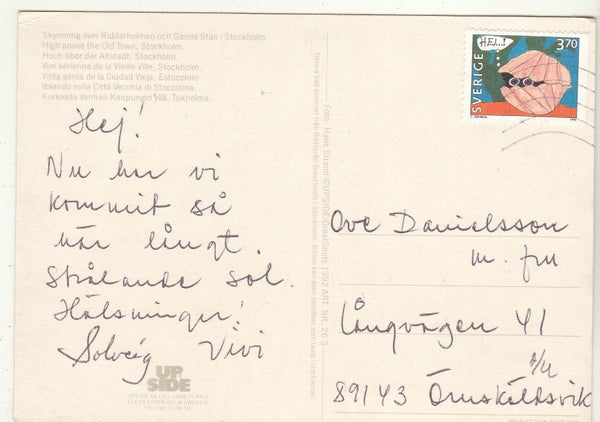 Skymning över Riddarholmen och Gamla Stan i Stockholm.
High above the Old Town, Stockholm.
Hoch über der Altstadt, Stockholm.
Vue aérienne de la Vieille Ville, Stockholm.
Vista aérea de la Ciudad Vieja, Estocolmo.
Volando sulla Città Vecchia di Stoccolma.
Korkealla Vanhan Kaupungin yllä, Tukholma.
Hej!
Nu har vi
kommit så
här långt.
Strålande sol.
Hälsningar!
Solveig Vivi
UP
SIDE
STOCKHOLM SWEDEN
Foto: Hans Strand ©UPSIDE GreatShots 1992 ART. NR. 26 S
HEJ...!
3.70
SVERIGE
Ove Danielsson
m. fru
Långvägen 41
89143 Örnsköldsvik